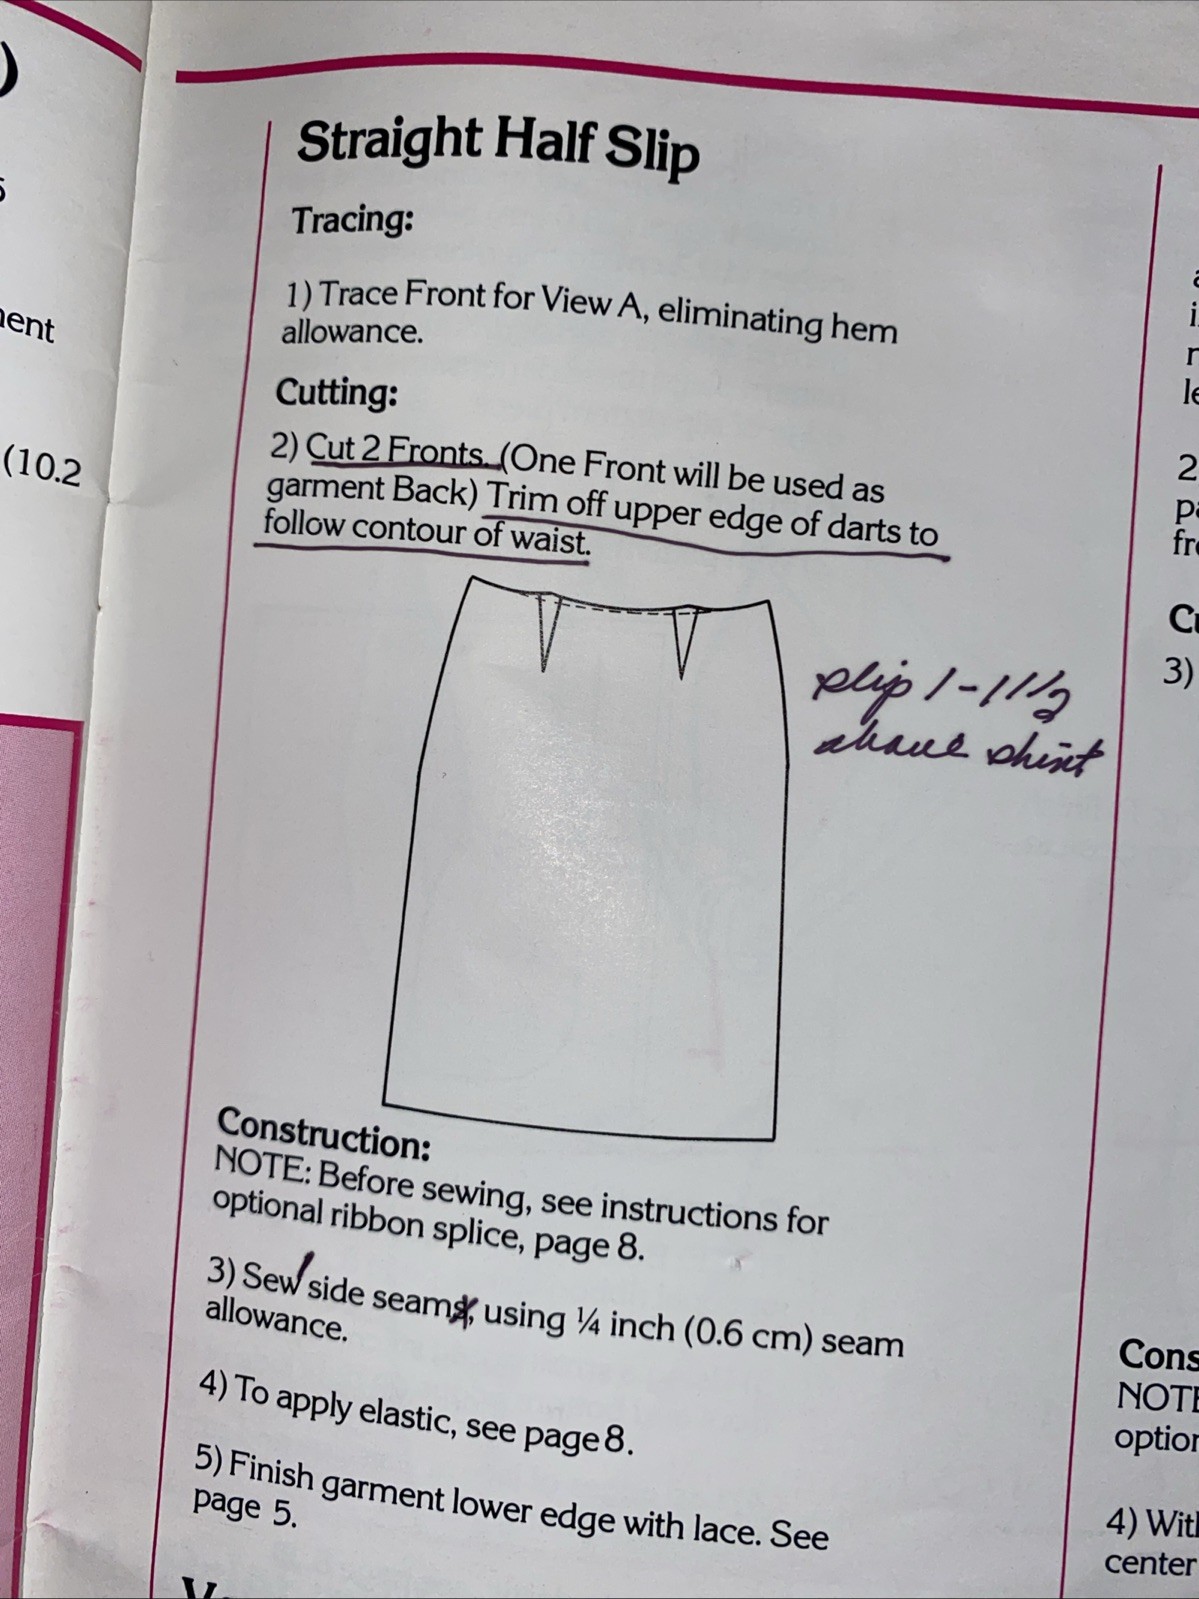 )
5
ment
(10.2
Straight Half Slip
Tracing:
1) Trace Front for View A, eliminating hem
allowance.
Cutting:
2) Cut 2 Fronts. (One Front will be used as
garment Back) Trim off upper edge of darts to
follow contour of waist.
slip 1-1 1/2
above skirt
Construction:
NOTE: Before sewing, see instructions for
optional ribbon splice, page 8.
3) Sew side seams, using ¼ inch (0.6 cm) seam
allowance.
4) To apply elastic, see page 8.
5) Finish garment lower edge with lace. See
page 5.
2
3)
Cons
NOTE
option
4) With
center